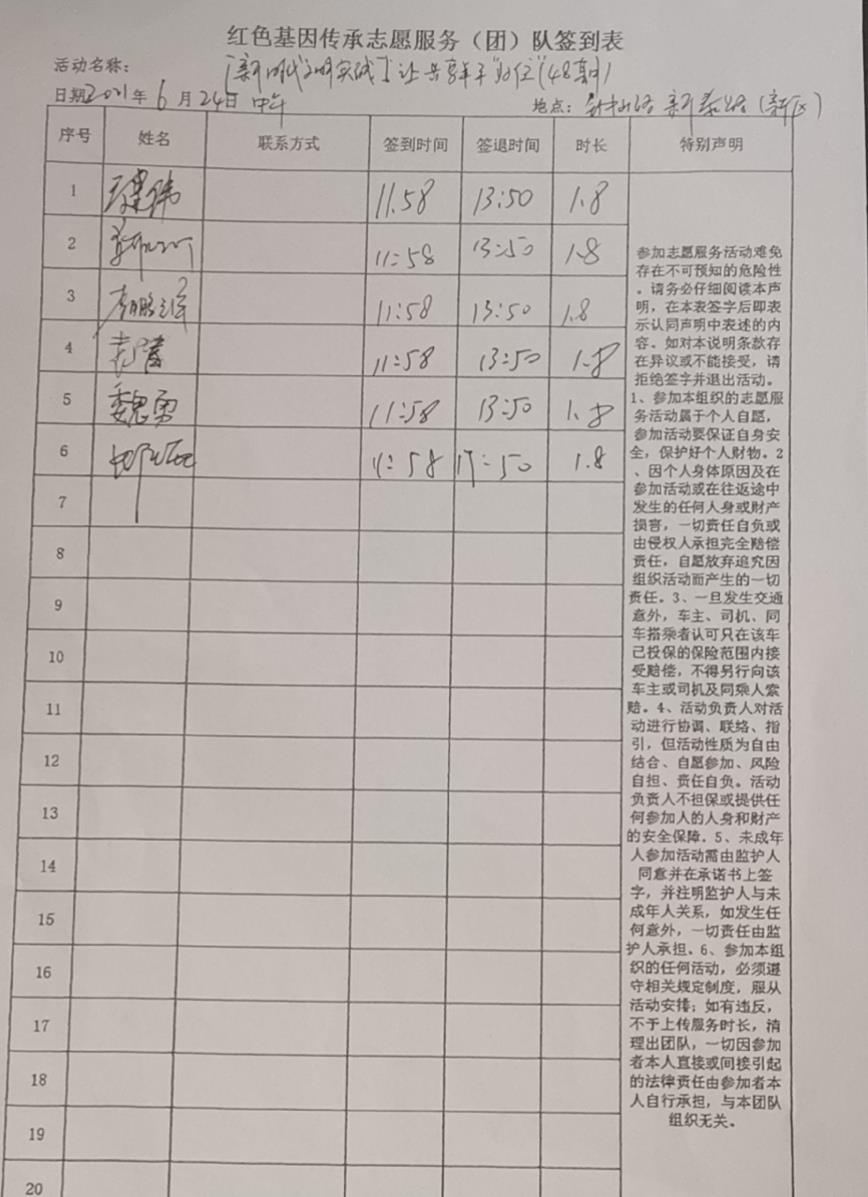 红色基因传承志愿服务（团）队签到表
活动名称： 「新时代文明实践」让共享单车"归位"（48期）
日期2021年6月24日 中午 地点： 新泰路（新区）
序号 姓名 联系方式 签到时间 签退时间 时长 特别声明
1 建伟 11.58 13:50 1.8
2 11:58 13:50 1.8
3 11:58 13:50 1.8
4 11:58 13:50 1.8
5 魏勇 11:58 13:50 1.8
6 11:58 17:50 1.8
7
8
9
10
11
12
13
14
15
16
17
18
19
20
参加志愿服务活动难免
存在不可预知的危险性
。请务必仔细阅读本声
明，在本表签字后即表
示认同声明中表述的内
容。如对本说明条款存
在异议或不能接受，请
拒绝签字并退出活动。
1、参加本组织的志愿服
务活动属于个人自愿，
参加活动要保证自身安
全，保护好个人财物。2
、因个人身体原因及在
参加活动或在往返途中
发生的任何人身或财产
损害，一切责任自负或
由侵权人承担完全赔偿
责任，自愿放弃追究因
组织活动而产生的一切
责任。3、一旦发生交通
意外，车主、司机、同
车搭乘者认可只在该车
已投保的保险范围内接
受赔偿，不得另行向该
车主或司机及同乘人索
赔。4、活动负责人对活
动进行协调、联络、指
引，但活动性质为自由
结合、自愿参加、风险
自担、责任自负。活动
负责人不担保或提供任
何参加人的人身和财产
的安全保障。5、未成年
人参加活动需由监护人
同意并在承诺书上签
字，并注明监护人与未
成年人关系，如发生任
何意外，一切责任由监
护人承担。6、参加本组
织的任何活动，必须遵
守相关规定制度，服从
活动安排；如有违反，
不予上传服务时长，清
理出团队，一切因参加
者本人直接或间接引起
的法律责任由参加者本
人自行承担，与本团队
组织无关。